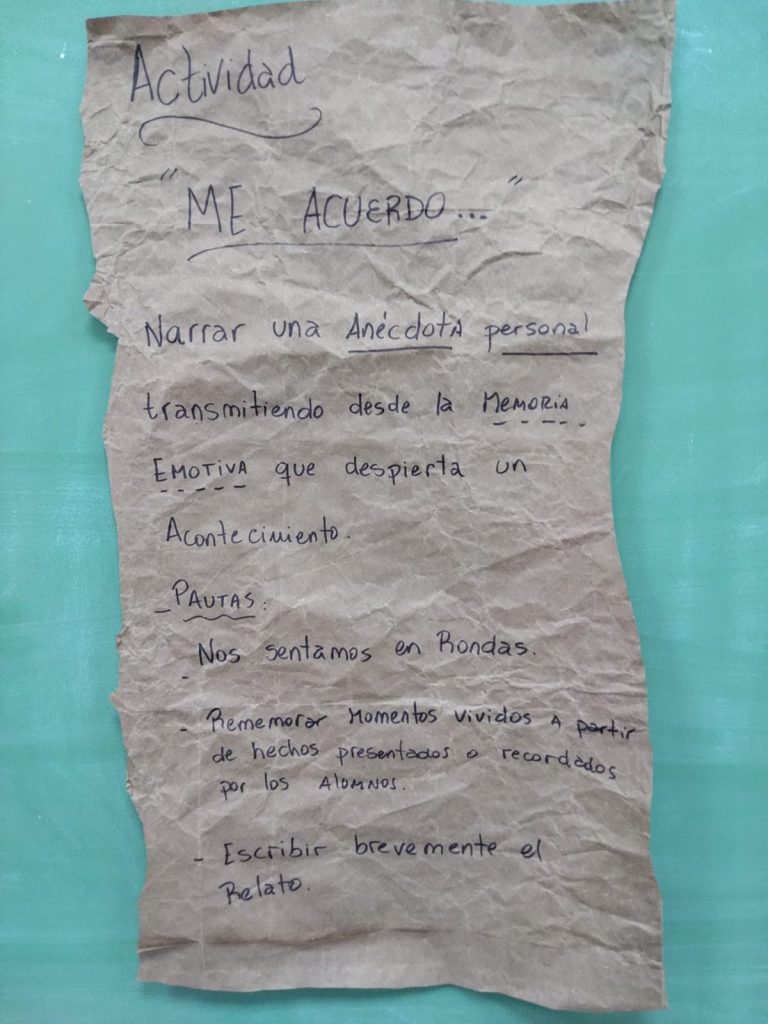 Actividad
"ME ACUERDO..."
Narrar una AnécdotA personal
transmitiendo desde la MEMORIA
EMOTIVA que despierta un
Acontecimiento.
- PAUTAS:
- Nos sentamos en Rondas.
- Rememorar Momentos vividos A partir
de hechos presentados o recordados
por los AlUMNOS.
- Escribir brevemente el
Relato.